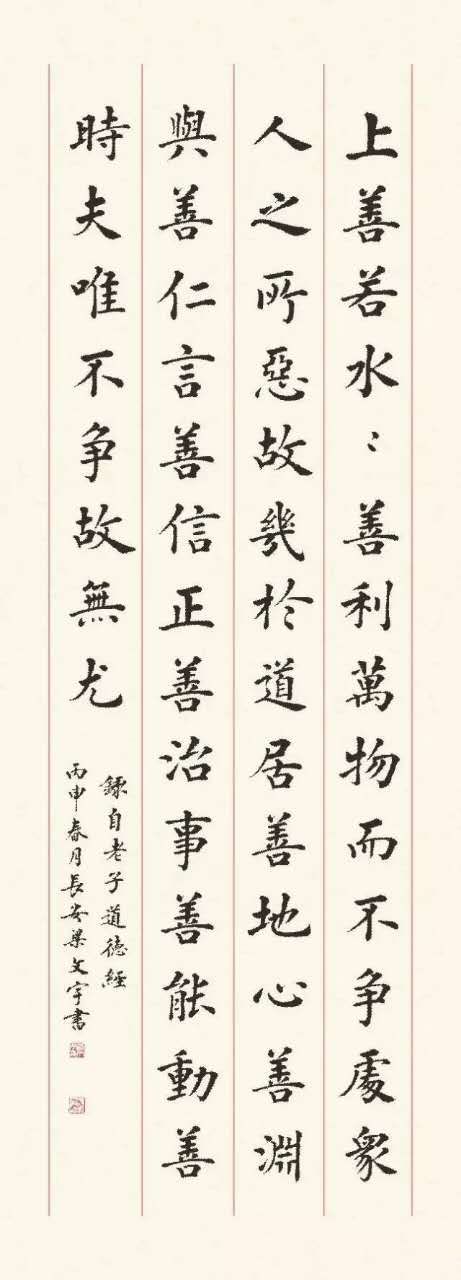 上善若水〻善利萬物而不争處衆
人之所惡故幾於道居善地心善淵
與善仁言善信正善治事善能動善
時夫唯不争故無尤
錄自老子道德經
丙申春月長安梁文宇書